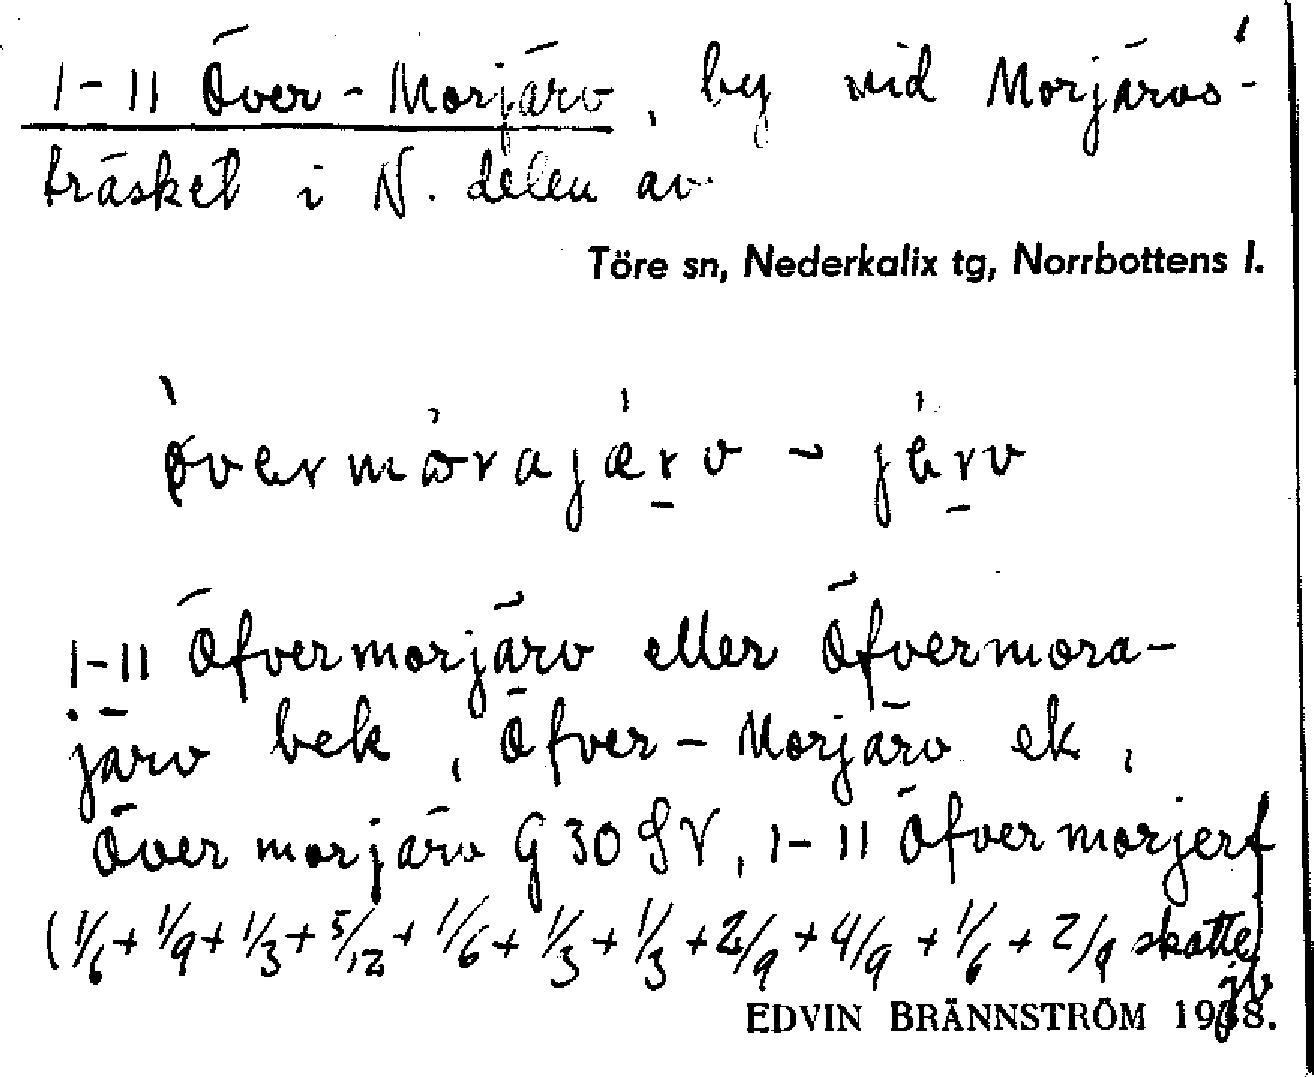 1-11 Över-Morjärv, by vid Morjärvs-
träsket i N. delen av
Töre sn, Nederkalix tg, Norrbottens l.
øvermòrajærv ~ jerv
1-11 Öfvermorjärv eller Öfvermora-
järv bek, Öfver-Morjärv ek,
Övermorjärv G 30 SV, 1-11 Öfvermorjerf
(1/6 + 1/9 + 1/3 + 5/12 + 1/6 + 1/3 + 1/3 + 2/9 + 4/9 + 1/6 + 2/9 skatte)
jb
EDVIN BRÄNNSTRÖM 1938.